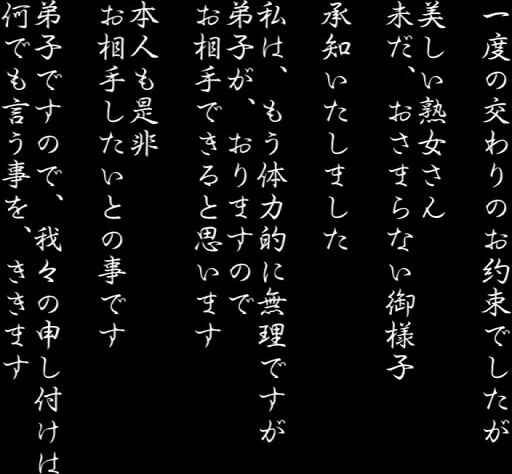 一度の交わりのお約束でしたが
美しい熟女さん
未だ、おさまらない御様子
承知いたしました
私は、もう体力的に無理ですが
弟子が、おりますので
お相手できると思います
本人も是非
お相手したいとの事です
弟子ですので、我々の申し付けは
何でも言う事を、ききます